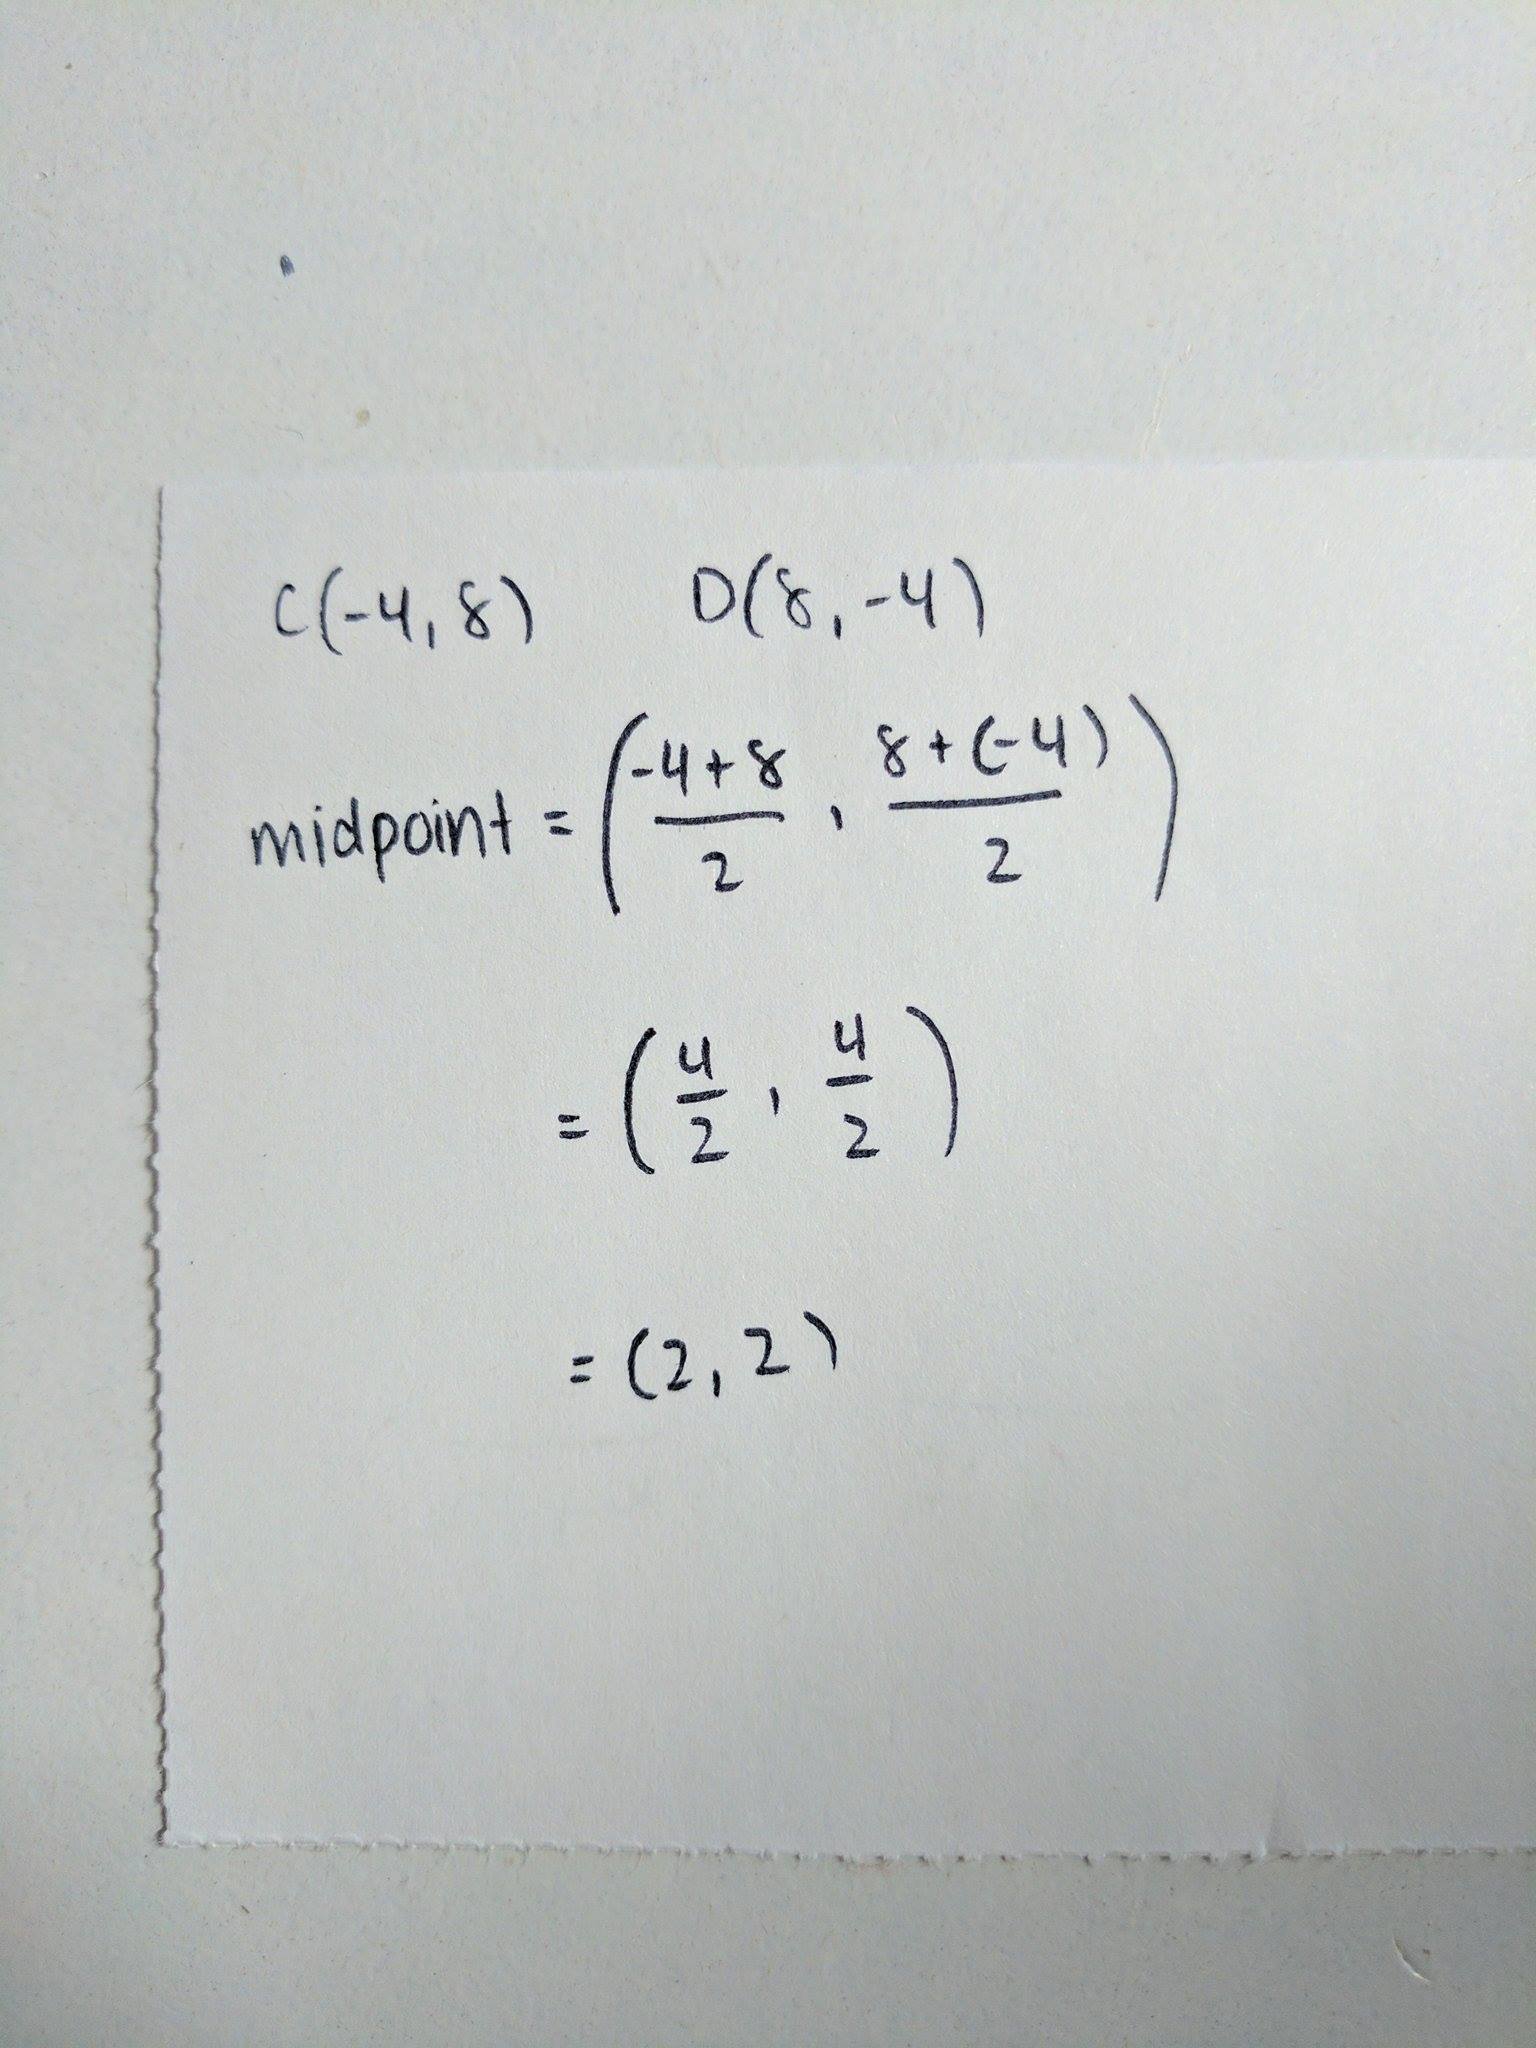 C(-4, 8) D(8, -4)
midpoint = (\frac{-4+8}{2}, \frac{8+(-4)}{2})
= (\frac{4}{2}, \frac{4}{2})
= (2, 2)